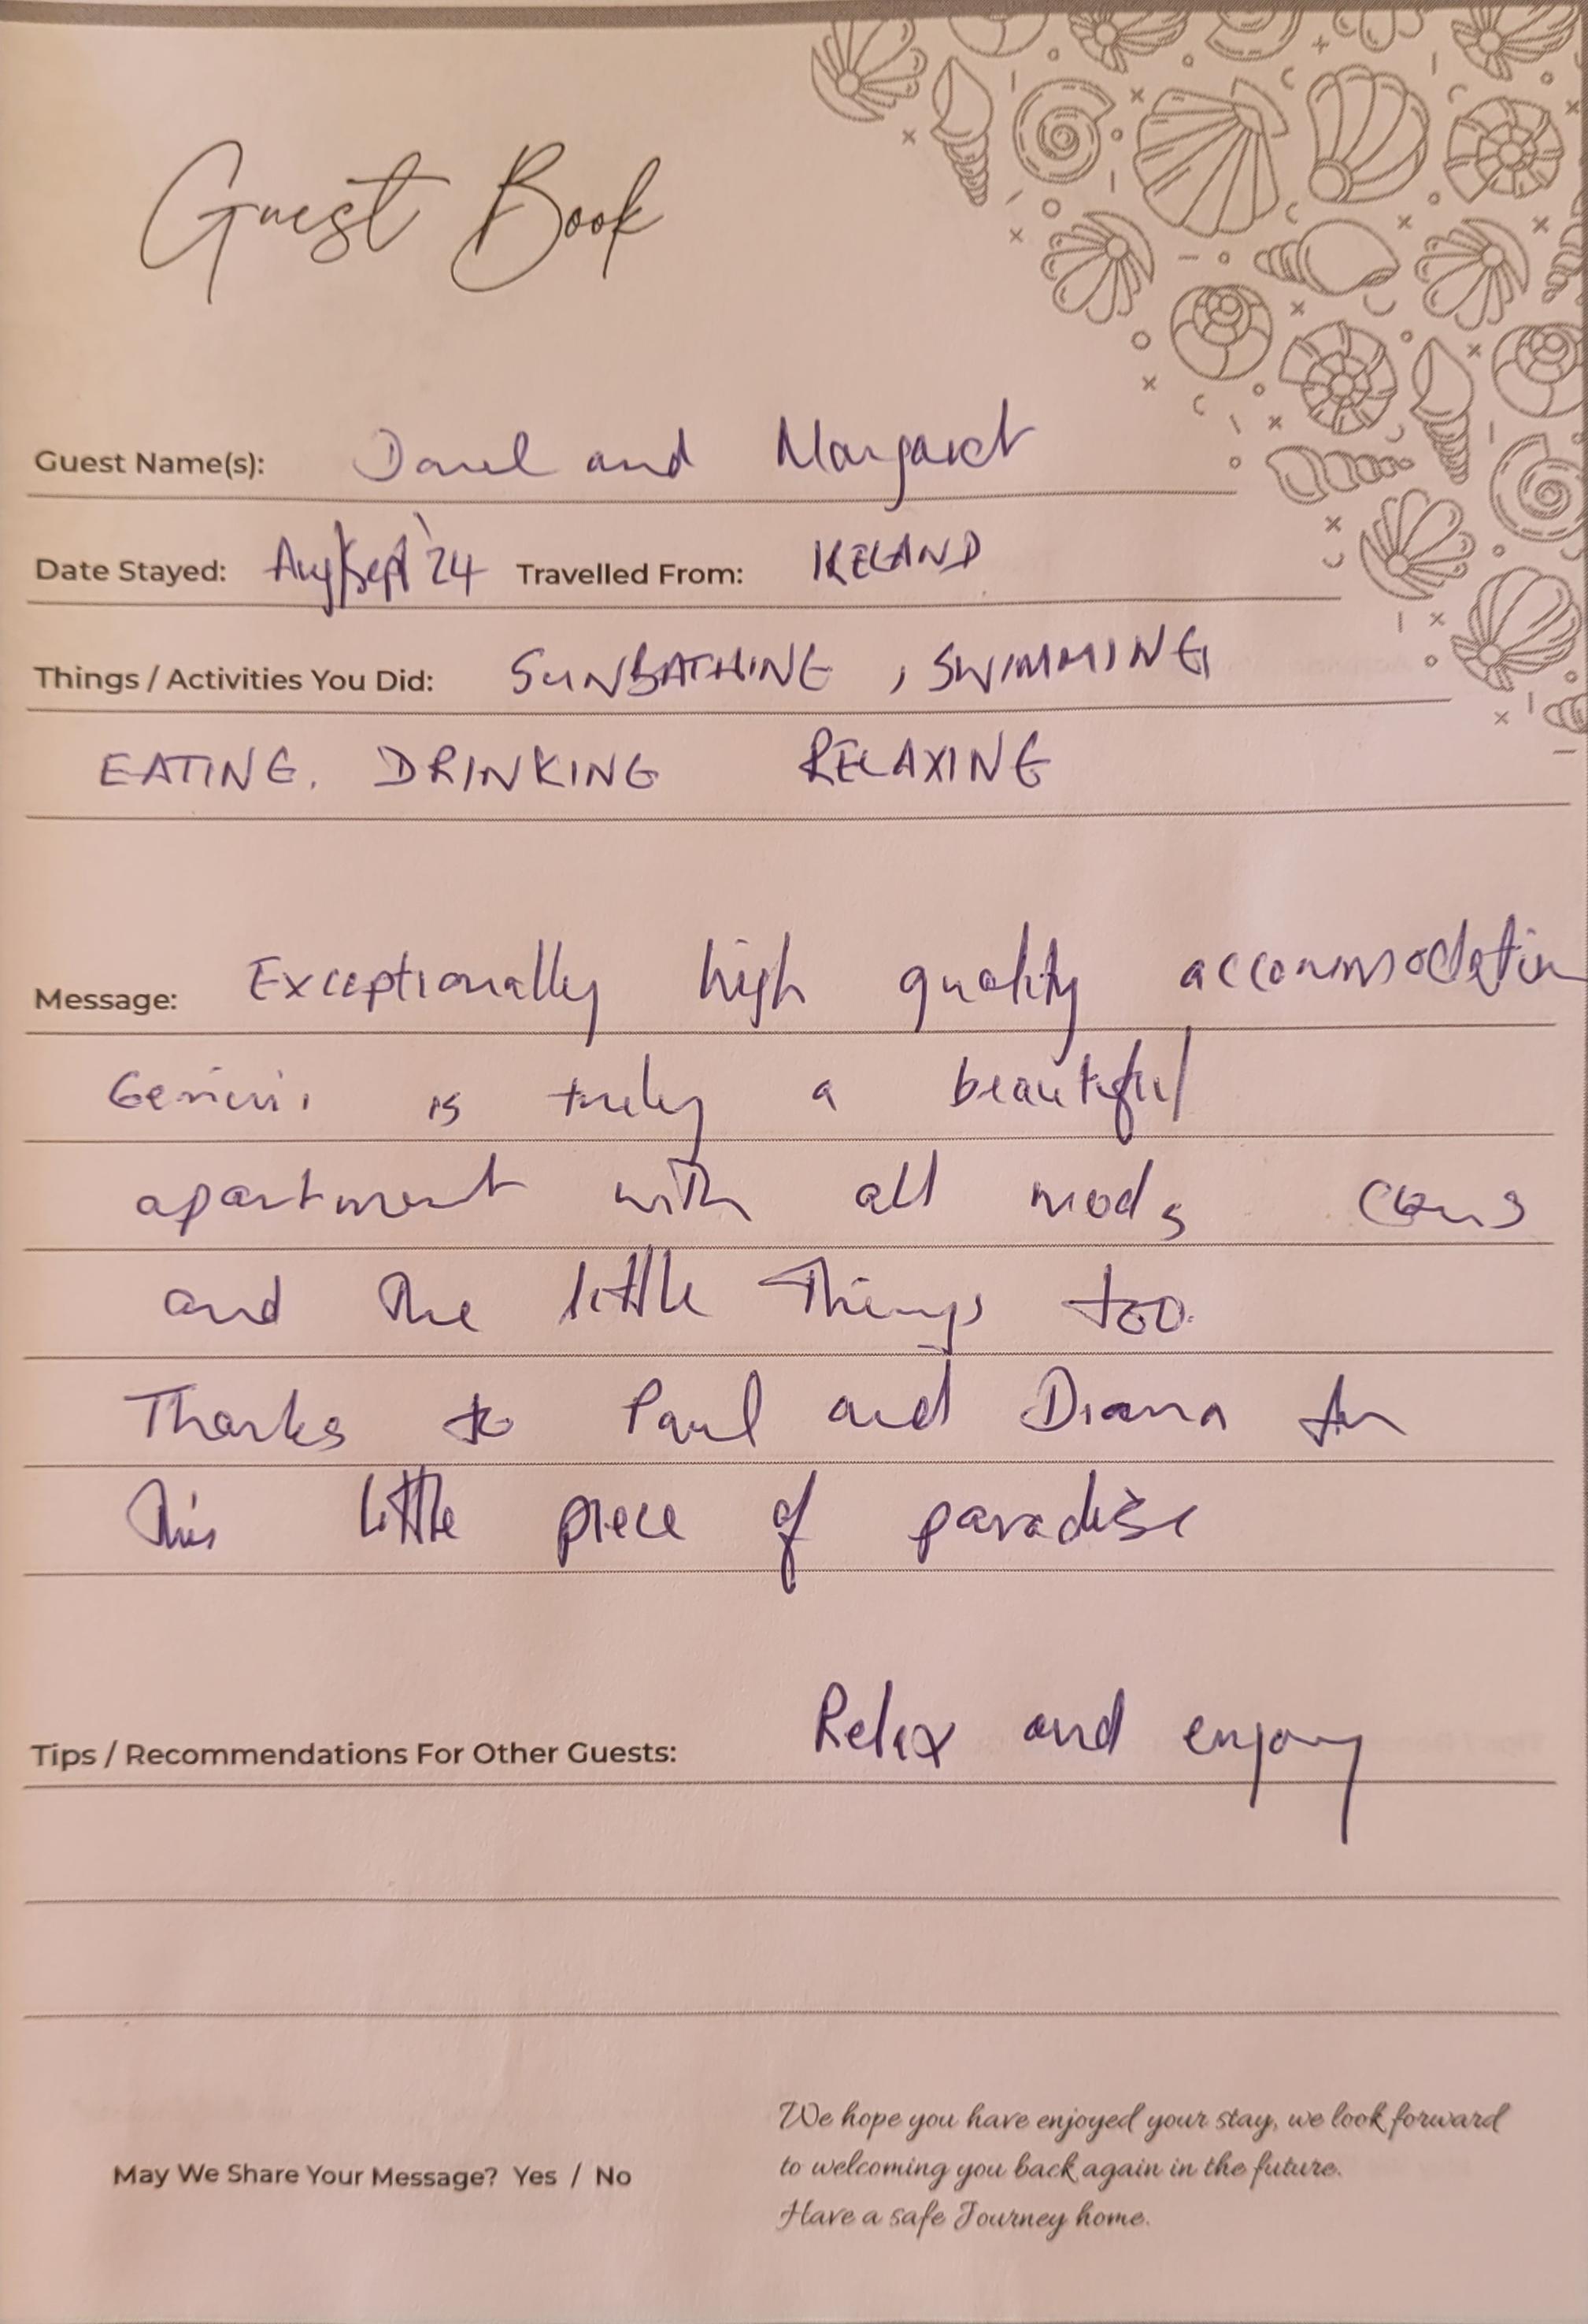 Guest Book
Guest Name(s): and Margaret
Date Stayed: Aug/Sept '24 Travelled From: IRELAND
Things / Activities You Did: SUNBATHING , SWIMMING,
EATING. DRINKING RELAXING
Message: Exceptionally high quality accommodation
Gemini is truly a beautiful
apartment with all mods cons
and the little things too.
Thanks to Paul and Diana for
this little piece of paradise
Tips / Recommendations For Other Guests: Relax and enjoy
May We Share Your Message? Yes / No
We hope you have enjoyed your stay, we look forward
to welcoming you back again in the future.
Have a safe Journey home.